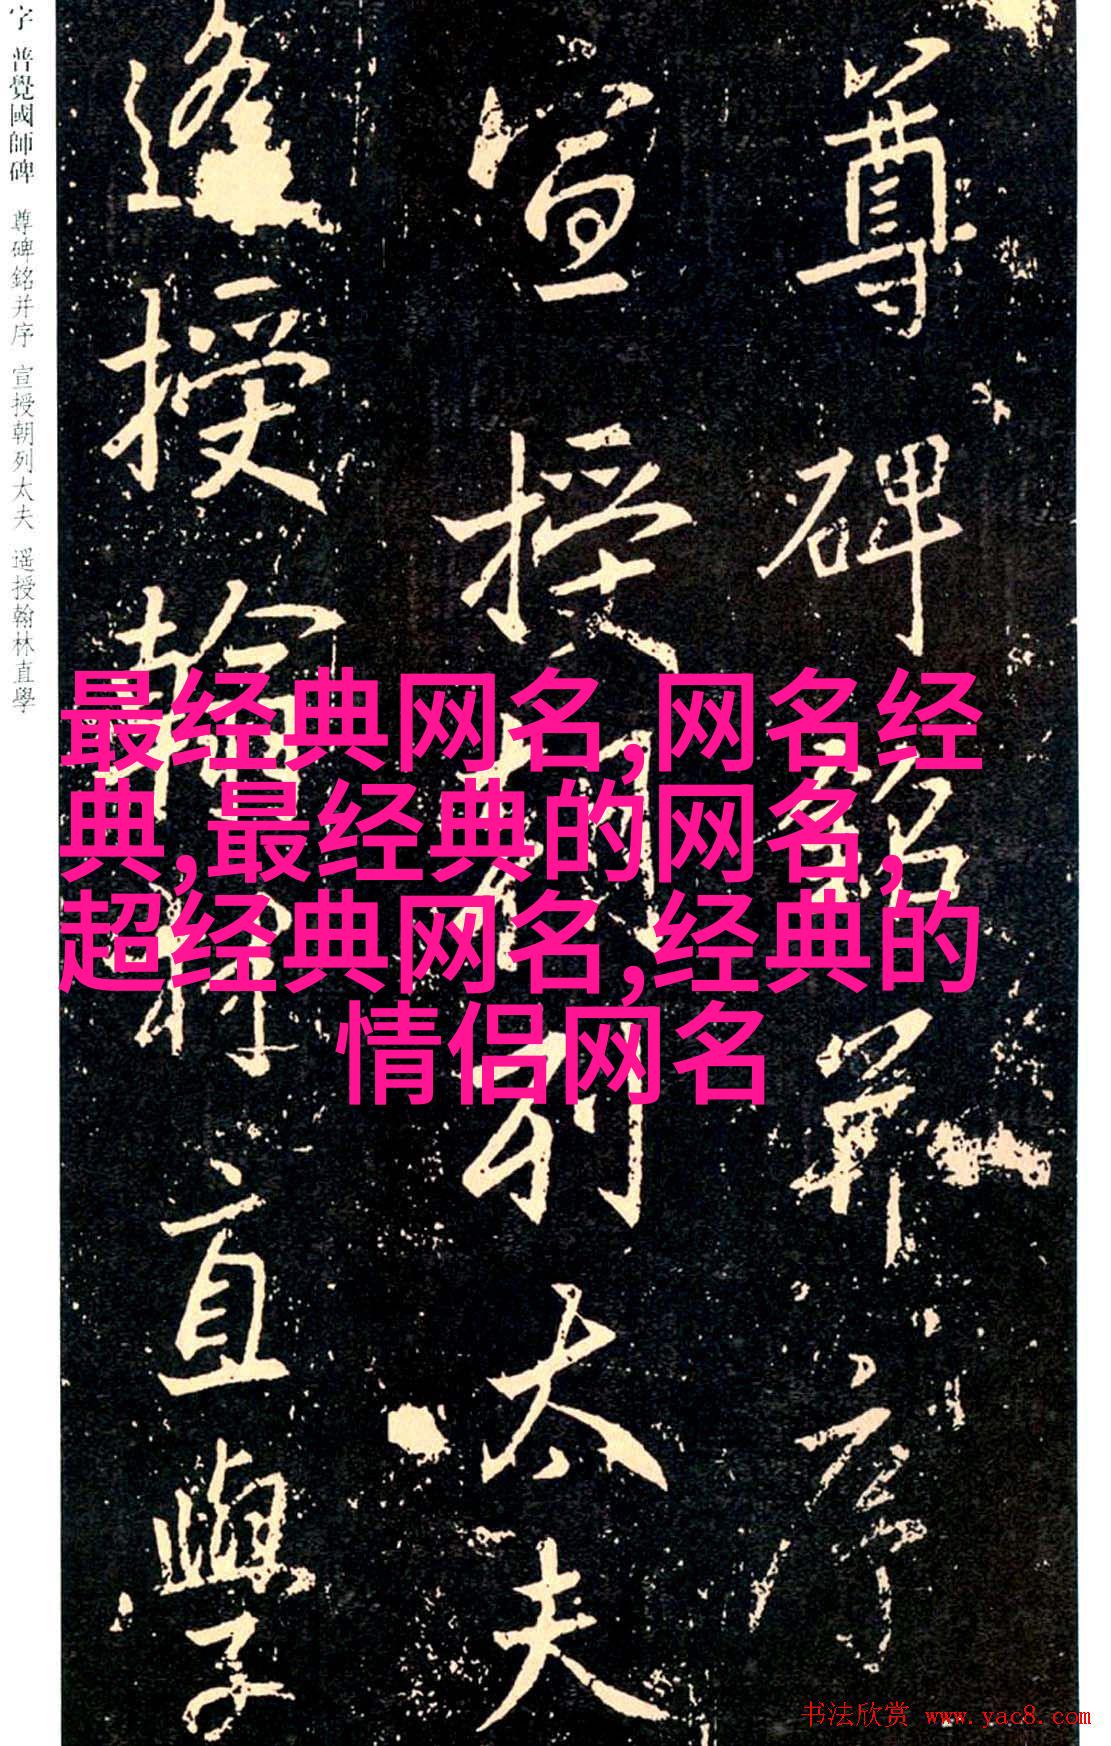 字 普覺國師碑 尊碑銘并序 宣授朝列太夫 遥授翰林直學
尊碑銘并序
宣授朝列太夫
遥授翰林直學
最经典网名,网名经
典,最经典的网名,
超经典网名,经典的
情侣网名
书法欣赏 www.yac8.com